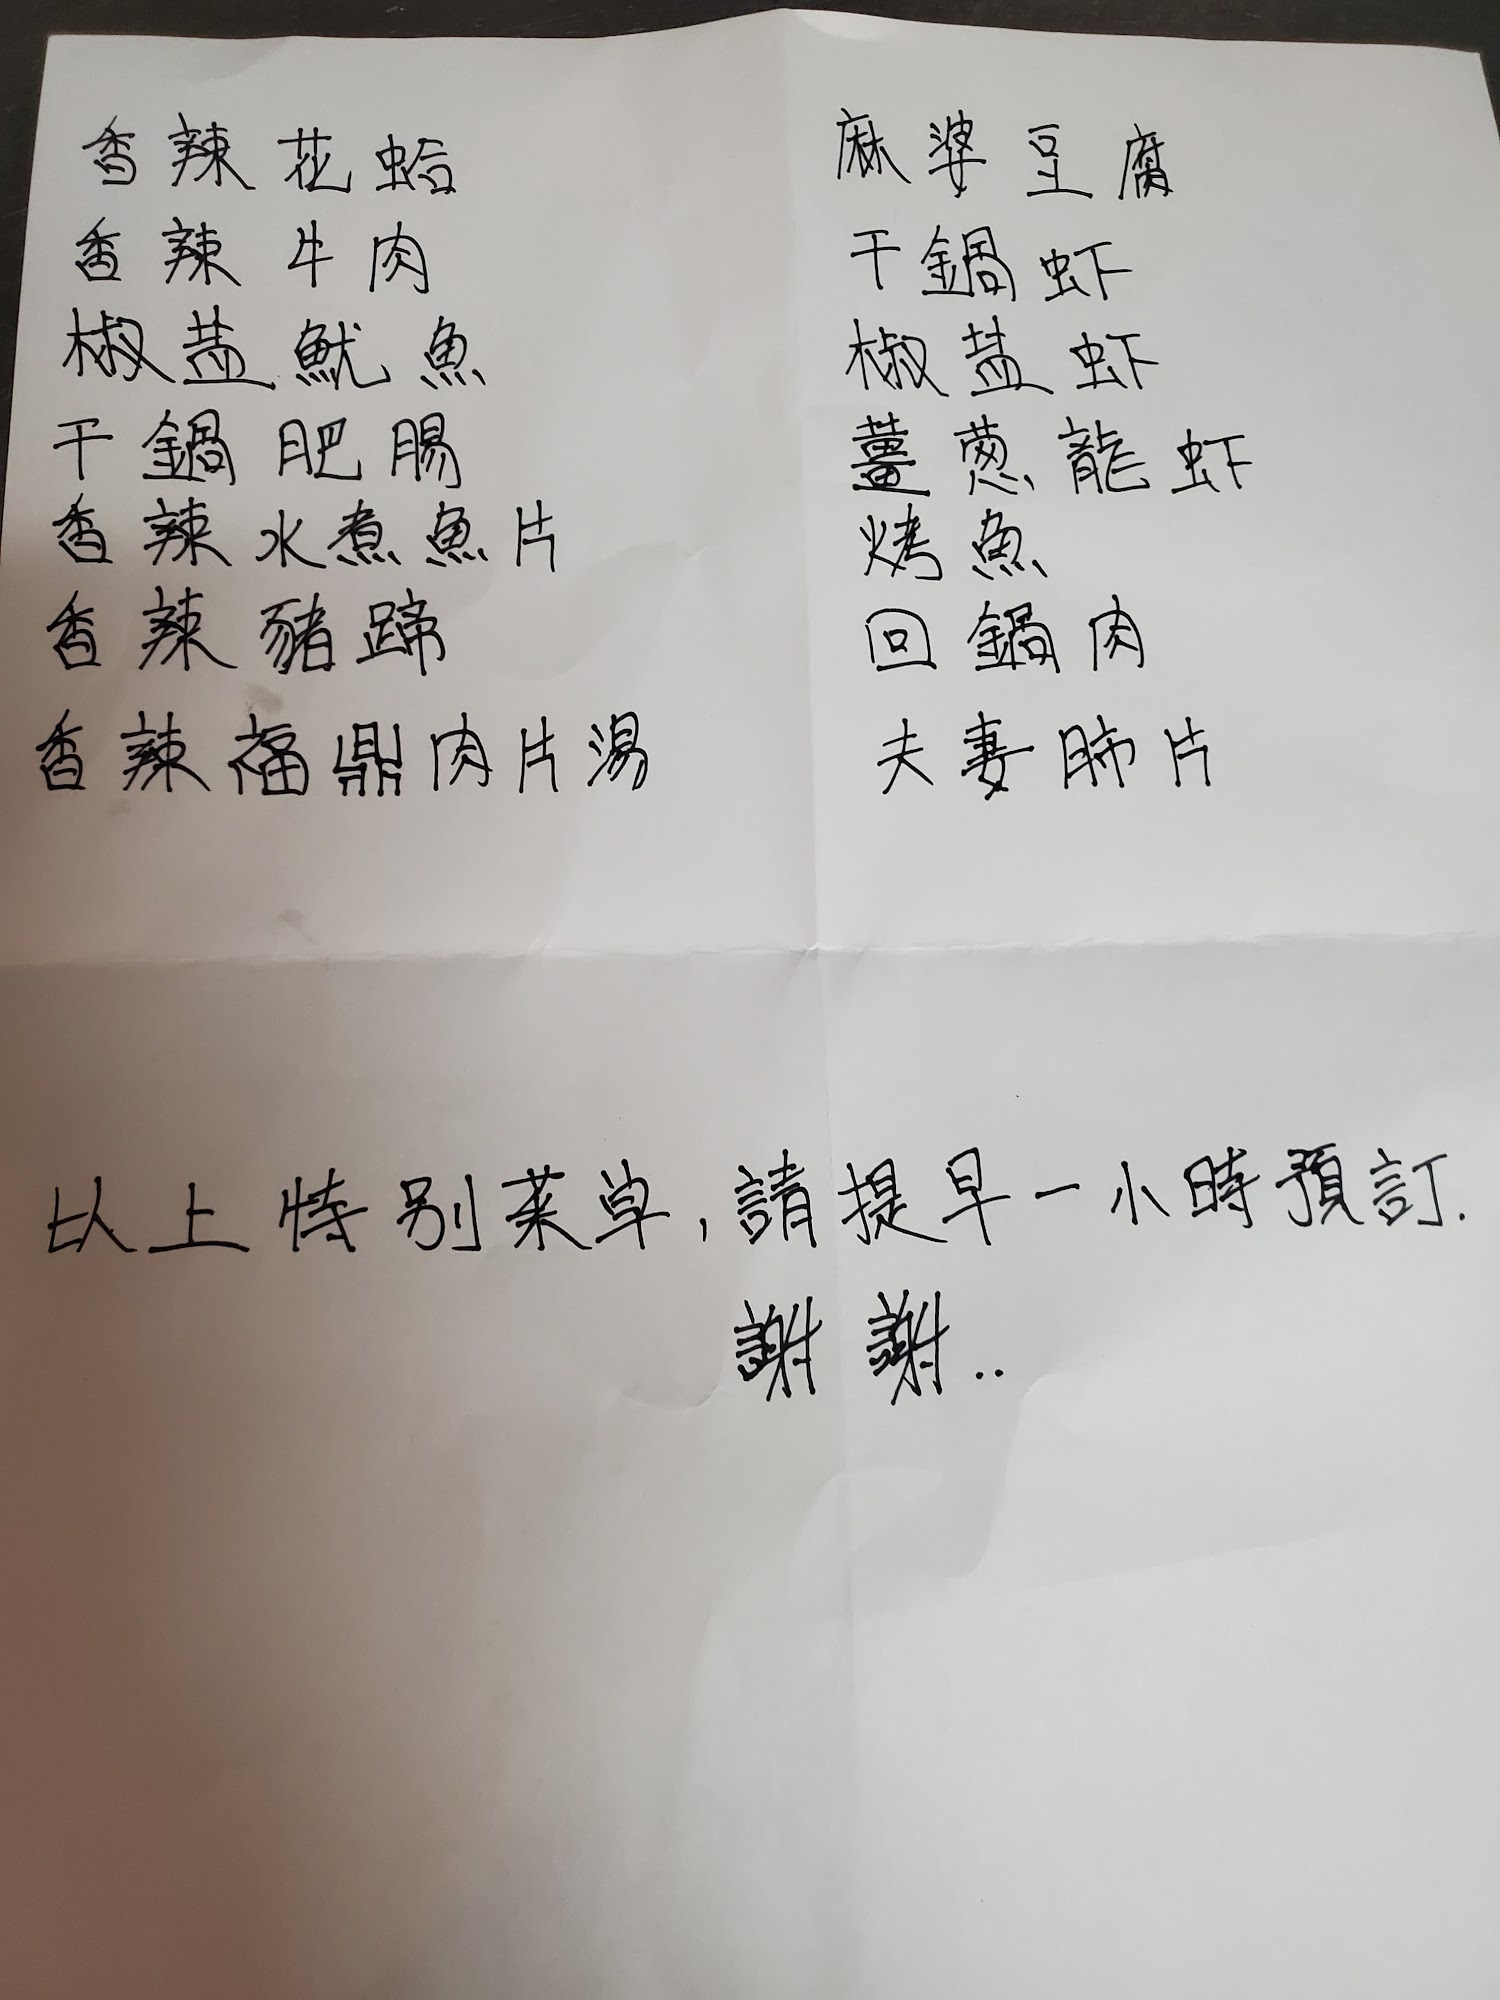 香辣花蛤
香辣牛肉
椒盐魷魚
干鍋肥腸
香辣水煮魚片
香辣豬蹄
香辣福鼎肉片湯
麻婆豆腐
干鍋虾
椒盐虾
薑葱龍虾
烤魚
回鍋肉
夫妻肺片
以上特别菜单,請提早一小時預訂.
謝謝..